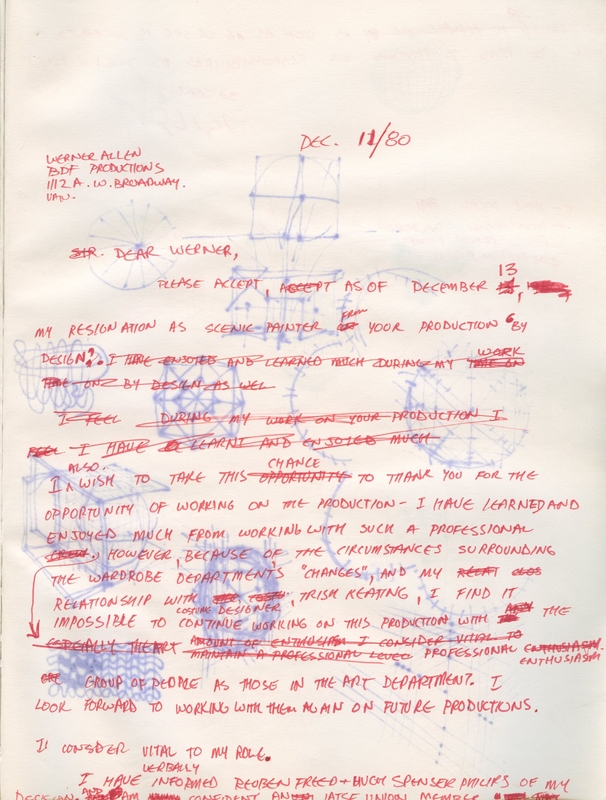 DEC. 11/80
WERNER ALLEN
BDF PRODUCTIONS
1112 A. W. BROADWAY.
VAN.
SIR. DEAR WERNER,
13
PLEASE ACCEPT, ACCEPT AS OF DECEMBER
FROM
MY RESIGNATION AS SCENIC PAINTER YOUR PRODUCTION "BY
DESIGN". I HAVE ENJOYED AND LEARNED MUCH DURING MY WORK
TIME ON BY DESIGN AS WEL
I FEEL DURING MY WORK ON YOUR PRODUCTION I
FEEL I HAVE LEARNT AND ENJOYED MUCH
ALSO. CHANCE
I WISH TO TAKE THIS OPPORTUNITY TO THANK YOU FOR THE
OPPORTUNITY OF WORKING ON THE PRODUCTION - I HAVE LEARNED AND
ENJOYED MUCH FROM WORKING WITH SUCH A PROFESSIONAL
CREW. HOWEVER, BECAUSE OF THE CIRCUMSTANCES SURROUNDING
THE WARDROBE DEPARTMENT'S "CHANGES", AND MY RELAT
RELATIONSHIP WITH TRISH KEATING, I FIND IT
COSTUME DESIGNER,
IMPOSSIBLE TO CONTINUE WORKING ON THIS PRODUCTION WITH THE
ESPECIALLY THE ART AMOUNT OF ENTHUSIASM I CONSIDER VITAL TO
MAINTAIN A PROFESSIONAL LEVEL PROFESSIONAL ENTHUSIASM.
ENTHUSIASM
GROUP OF PEOPLE AS THOSE IN THE ART DEPARTMENT. I
LOOK FORWARD TO WORKING WITH THEM AGAIN ON FUTURE PRODUCTIONS.
I CONSIDER VITAL TO MY ROLE.
VERBALLY
I HAVE INFORMED REUBEN FREED + HUGH SPENSER PHILIPS OF MY
DECISION. AND AM CONFIDENT AN IATSE UNION MEMBER